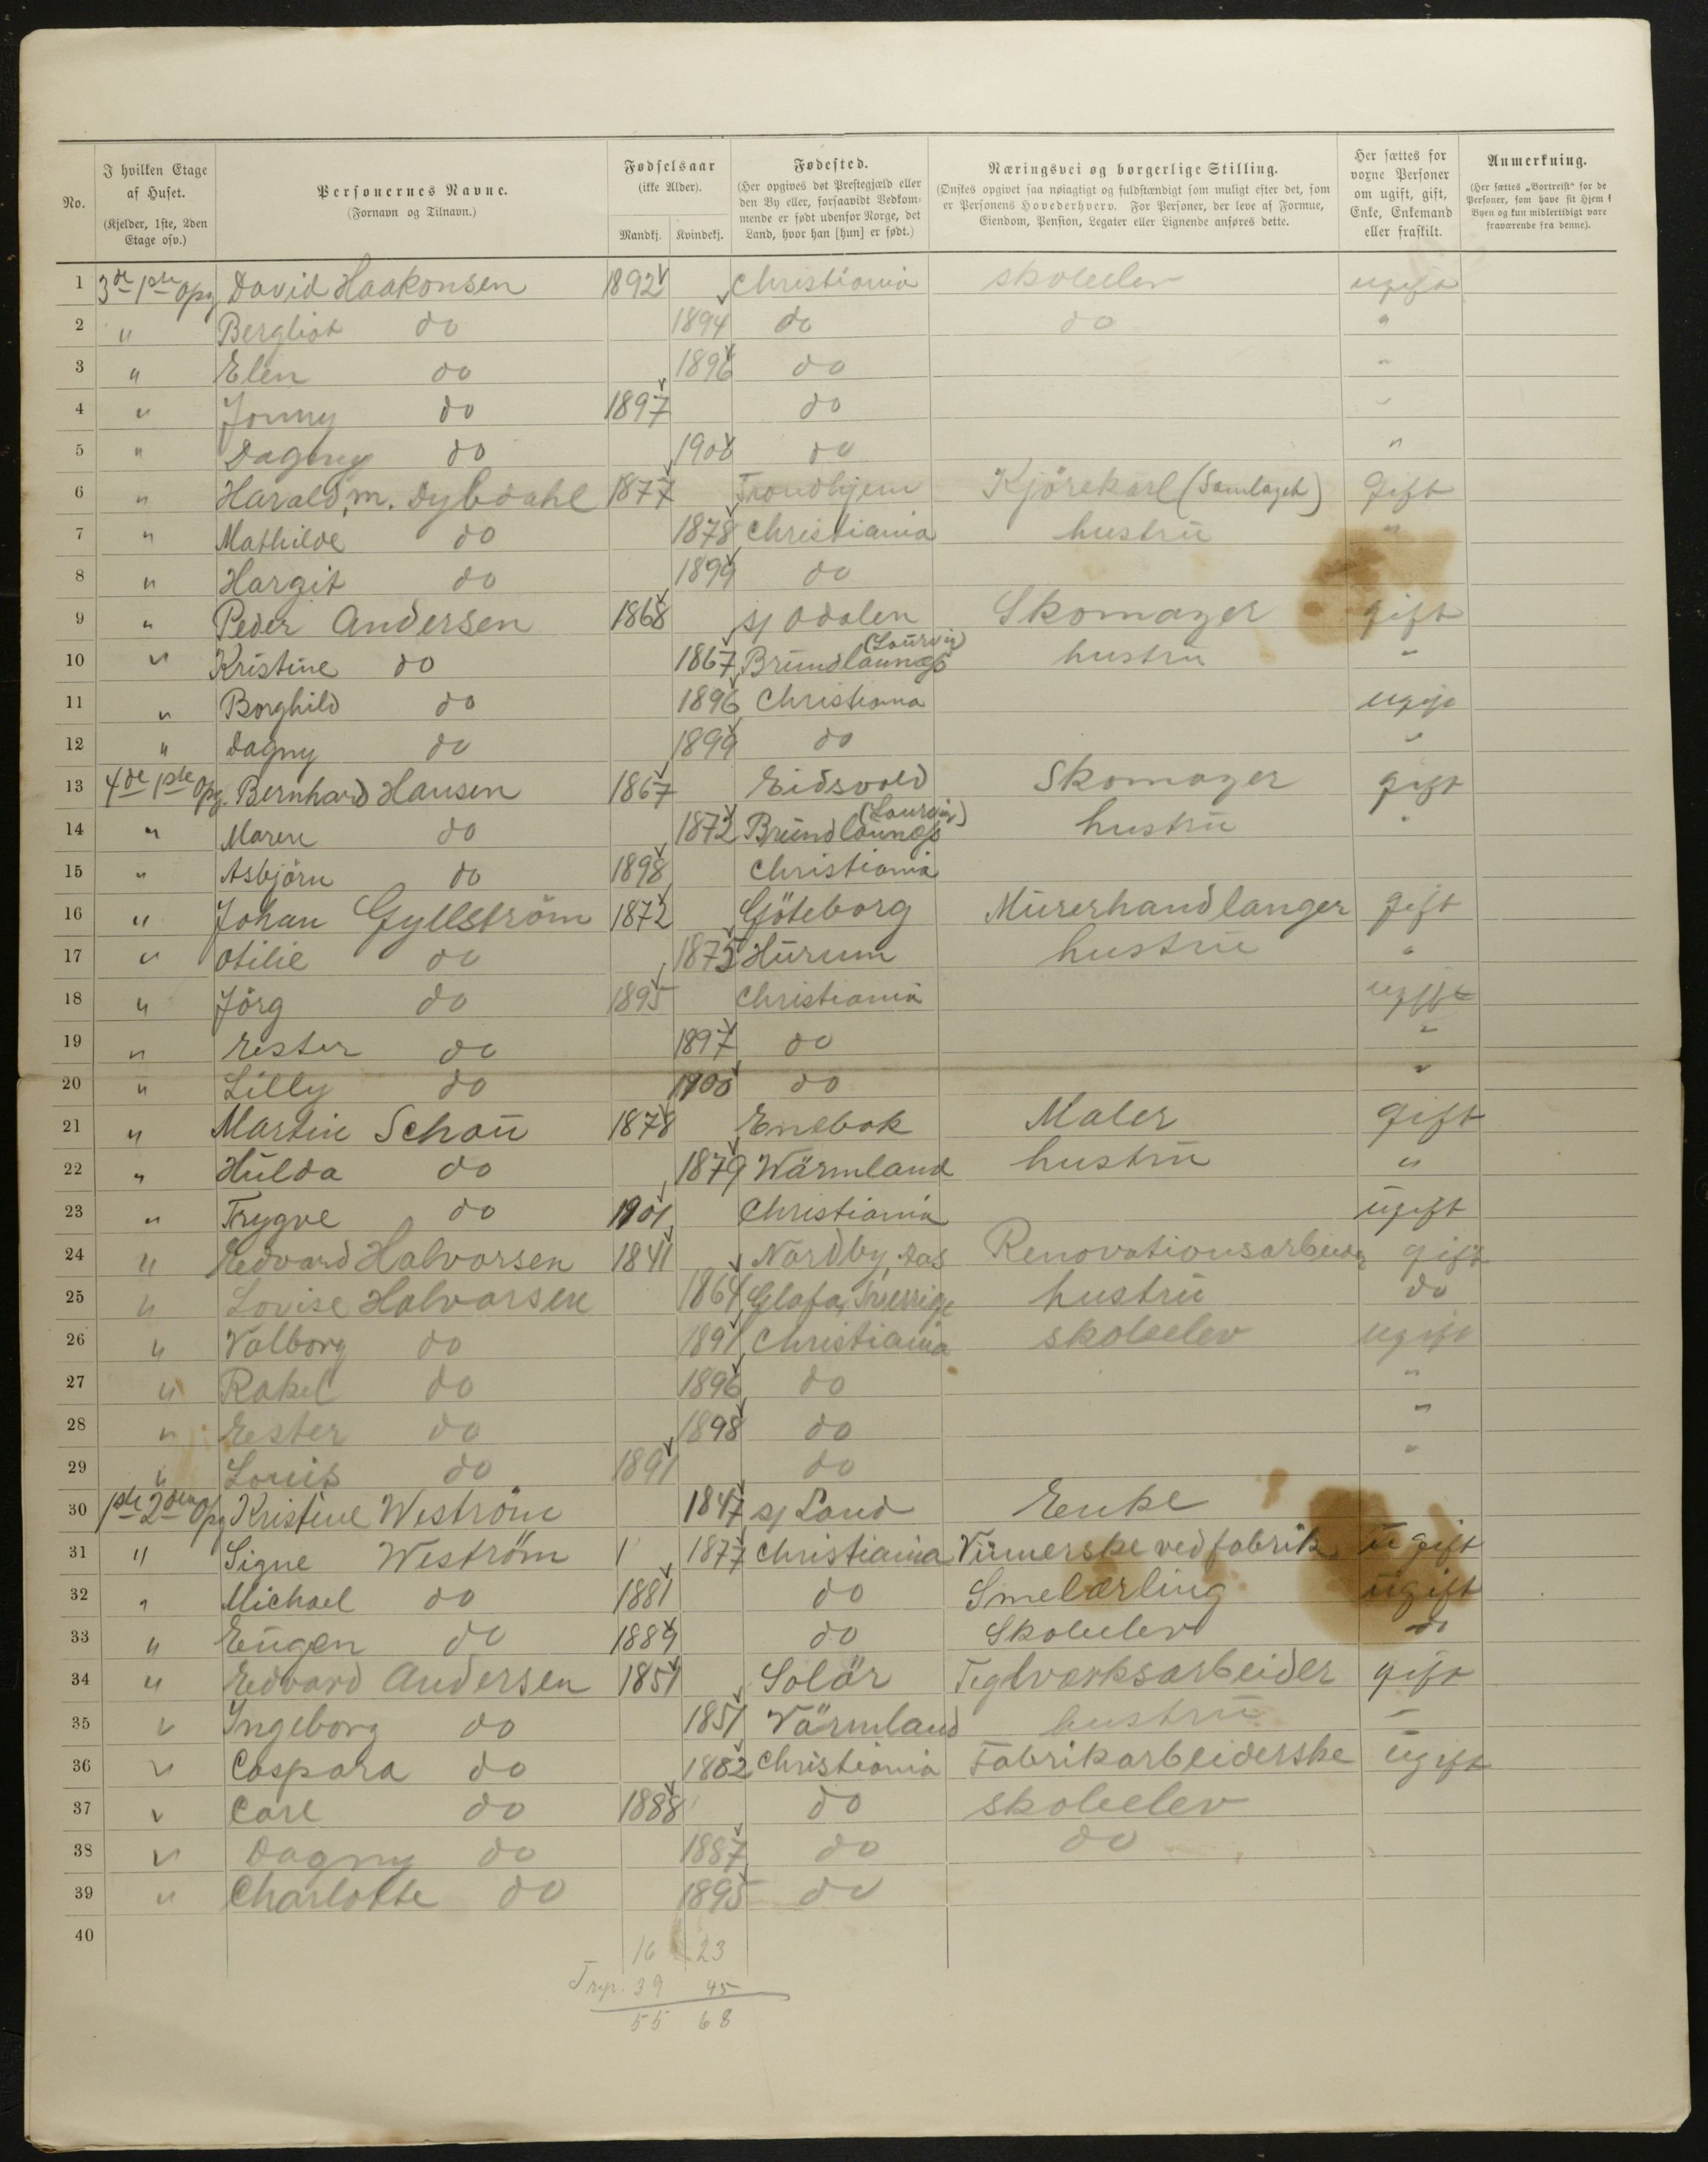 No. I hvilken Etage af Huset. (Kjelder, 1ste, 2den Etage osv.) Personernes Navne. (Fornavn og Tilnavn.) Fødselsaar (ikke Alder). Mandkj. Kvindekj. Fødested. (Her opgives det Prestegjæld eller den By eller, forsaavidt Vedkommende er født udenfor Norge, det Land, hvor han [hun] er født.) Næringsvei og borgerlige Stilling. (Ønskes opgivet saa nøiagtigt og fuldstændigt som muligt efter det, som er Personens Hovederhverv. For Personer, der leve af Formue, Eiendom, Pension, Legater eller Lignende anføres dette. Her sættes for voxne Personer om ugift, gift, Enke, Enkemand eller fraskilt. Anmerkning. (Her sættes „Bortreist" for de Personer, som have sit Hjem i Byen og kun midlertidigt vare fraværende fra denne).
1 3de 1ste Opg David Haakonsen 1892 Christiania skoleelev ugift
2 " Bergliot do 1894 do do "
3 " Elen do 1896 do "
4 " Jonny do 1897 do "
5 " Dagny do 1900 do "
6 " Harald m. Dybdahl 1877 Trondhjem Kjörekarl (Samlaget) Gift
7 " Mathilde do 1878 Christiania hustru "
8 " Hargit do 1899 do
9 " Peder Andersen 1868 Sj Odalen Skomager gift
10 " Kristine do 1867 Brundlaunæs (Laurvig) hustru "
11 " Borghild do 1896 Christiania ugift
12 " Dagny do 1899 do "
13 4de 1ste Opg. Bernhard Hansen 1867 Eidsvold Skomager gift
14 " Maren do 1872 Brundlaunæs (Laurvig) hustru "
15 " Asbjörn do 1898 Christiania
16 " Johan Gyllström 1872 Göteborg Murerhandlanger gift
17 " Otilie do 1875 Hurum hustru "
18 " Jörg do 1895 Christiania ugift
19 " Ester do 1897 do "
20 " Lilly do 1900 do "
21 " Martin Schau 1878 Enebak Maler gift
22 " Hulda do 1879 Wärmland hustru "
23 " Trygve do 1901 Christiania ugift
24 " Edvard Halvorsen 1841 Nordby, Aas Renovationsarbeider gift
25 " Lovise Halvorsen 1864 Glafa, Sverrige hustru do
26 " Valborg do 1891 Christiania skoleelev ugift
27 " Rakel do 1896 do "
28 " Ester do 1898 do "
29 " Louis do 1891 do "
30 1ste 2den Opg Kristine Weström 1847 Sj Land Enke
31 " Signe Weström 1877 Christiania ved fabrik ugift
32 " Michael do 1881 do Smelærling ugift
33 " Eugen do 1889 do Skoleelev do
34 " Edvard Andersen 1851 Solör Teglværksarbeider gift
35 " Ingeborg do 1851 Värmland hustru "
36 " Caspara do 1882 Christiania Fabrikarbeiderske ugift
37 " Carl do 1888 do skoleelev
38 " Dagny do 1887 do do
39 " Charlotte do 1895 do
40
16 23
39 45
55 68